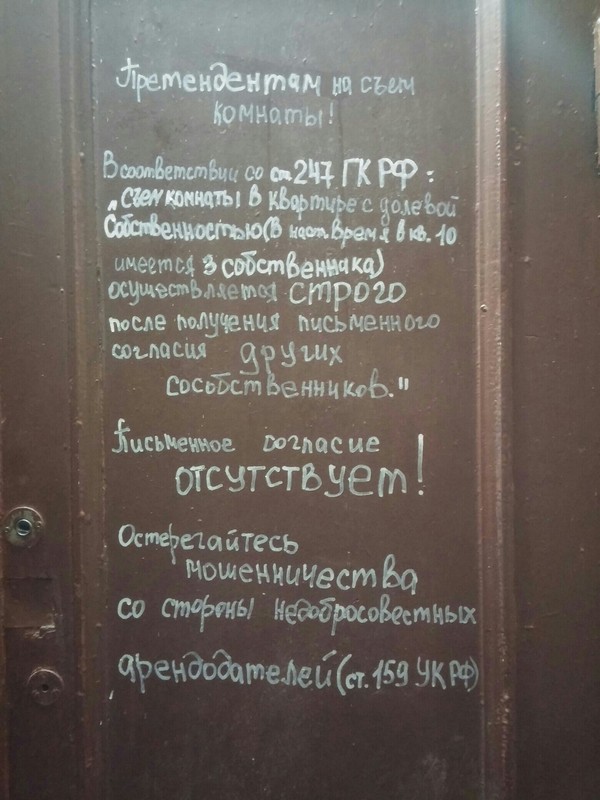 Претендентам на съем
комнаты!
В соответствии со ст 247 ГК РФ:
„съем комнаты в квартире с долевой
Собственностью (в наст. время в кв. 10
имеется 3 собственника)
осуществляется строго
после получения письменного
согласия других
сособственников."
Письменное согласие
отсутствует!
Остерегайтесь
мошенничества
со стороны недобросовестных
арендодателей (ст. 159 УК РФ)